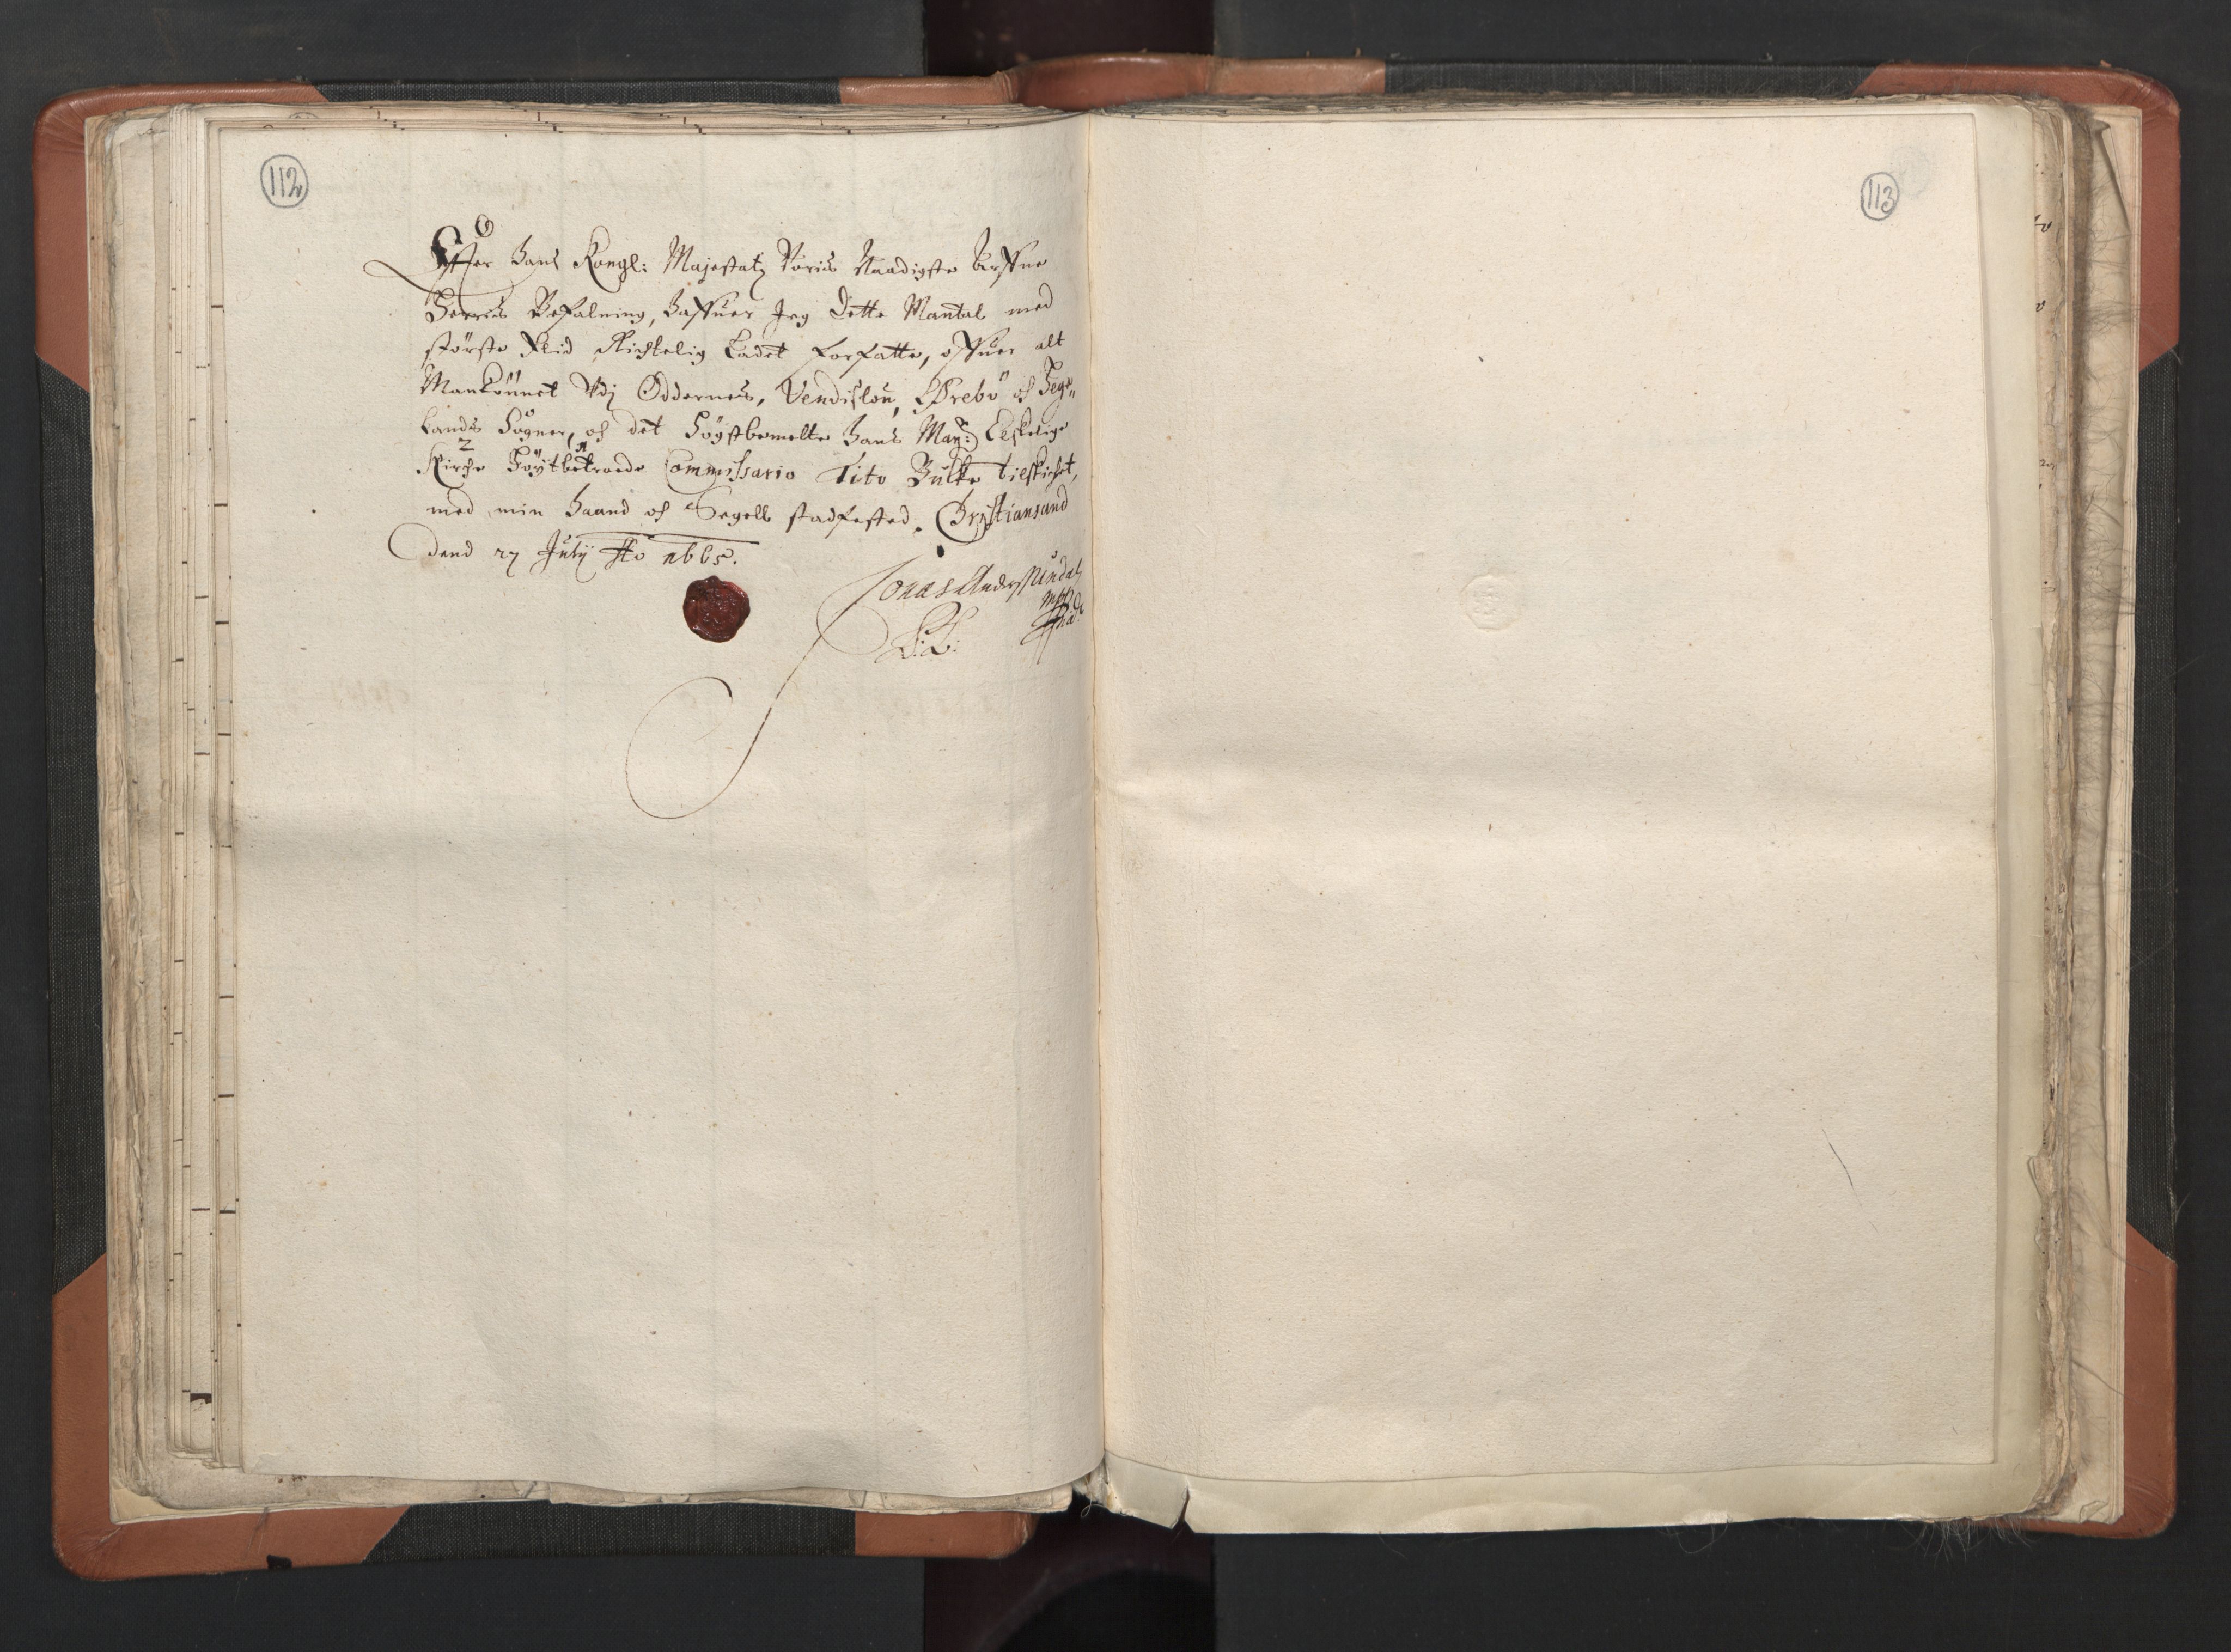 112
Effter Hans Kongl: Majestatz Voris Naadigste Arffue
Herris Befalning, haffuer Jeg dette Mantal med
største Flid Richtelig Ladet forfatte, offuer alt
Mankönnet Vdj Oddernes, Vendislou, Ørebö och Hege„
lands Sogner, och det Höystbemelte Hans May: Elskelige
2 1
Kirche Höytbetroede Commissario Tito Bülke tilskichet,
med min Haand och Segell stadfested. Christiansand
dend 27 July Ao 1665.
Jonas Anderss
L: S:
113